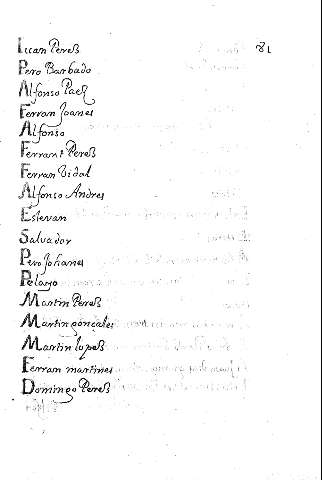 81
Iuan Perez
Pero Barbado
Alfonso Paez
Ferran Joanes
Alfonso
Ferrant Perez
Ferran Vidal
Alfonso Andres
Estevan
Salvador
Pero Johanes
Pelayo
Martin Perez
Martin gonçales
Martin lopez
Ferram martines
Domingo Perez